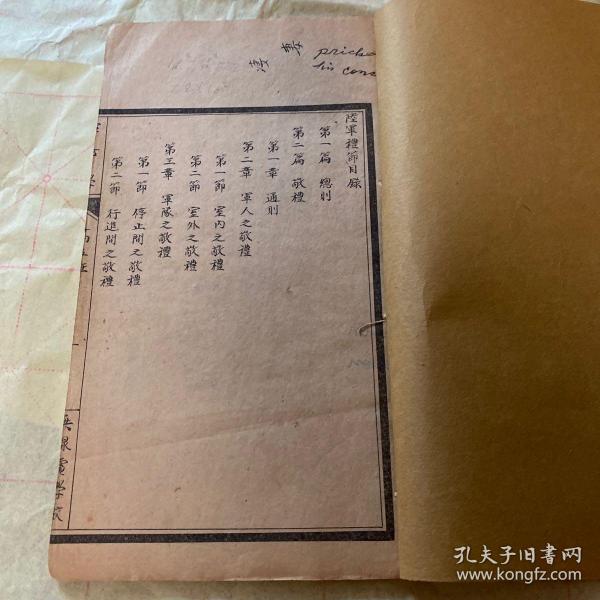 陸軍禮節目錄
第一篇 總則
第二篇 敬禮
第一章 通則
第二章 軍人之敬禮
第一節 室內之敬禮
第二節 室外之敬禮
第三章 軍隊之敬禮
第一節 停止間之敬禮
第二節 行進間之敬禮
無線電學校
孔夫子旧书网
www.kongfz.com